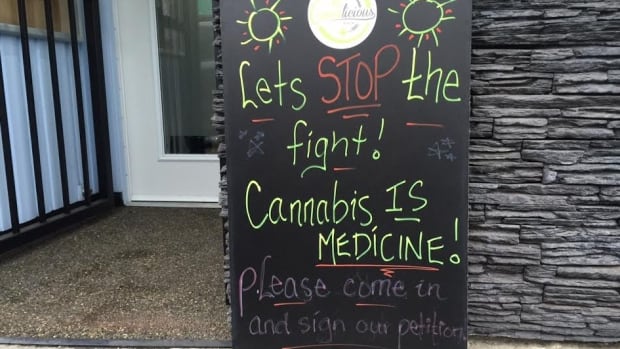 licious
Lets STOP the
fight!
Cannabis IS
MEDICINE!
please come in
and sign our petition